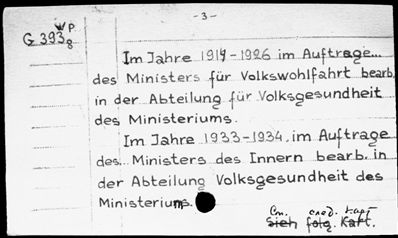 - 3 -
W P.
G 393 8
Im Jahre 1919-1926 im Auftrage...
des Ministers für Volkswohlfahrt bearb.
in der Abteilung für Volksgesundheit
des Ministeriums.
Im Jahre 1933-1934, im Auftrage
des.. Ministers des Innern bearb. in
der Abteilung Volksgesundheit des
Ministeriums.
Sieh folg. Kart.